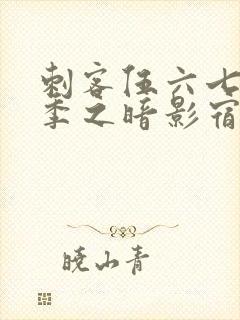 刺客伍六七
季之暗影宿
晓山青